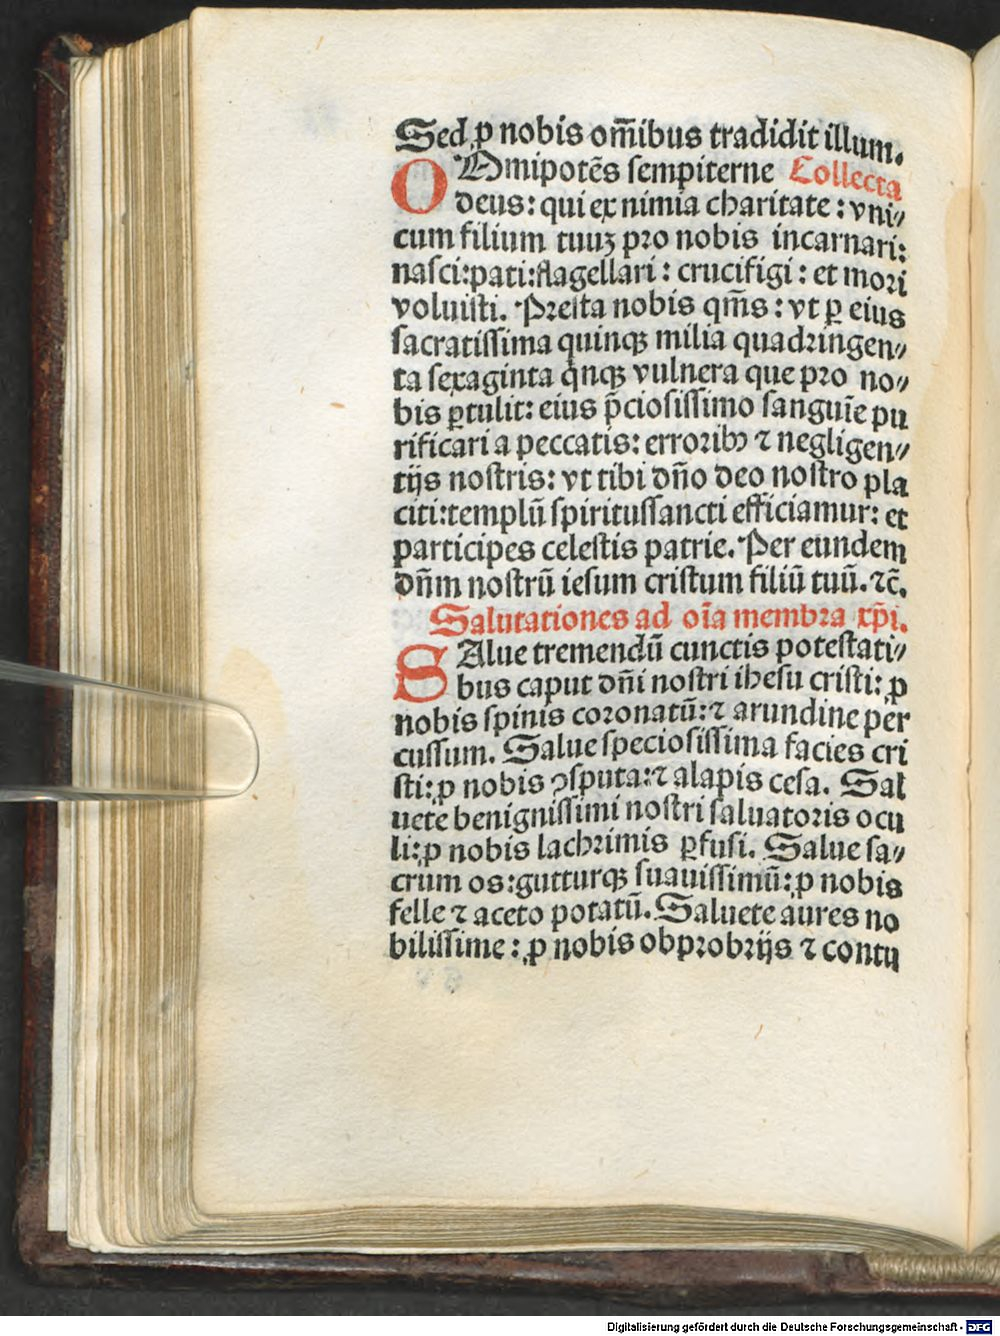 Sed ꝓ nobis om̄ibus tradidit illum.
OOmipotēs sempiterne Collecta
deus: qui ex nimia charitate: vni⸗
cum filium tuuꝫ pro nobis incarnari:
nasci: pati: flagellari: crucifigi: et mori
voluisti. Presta nobis qm̄s: vt ꝑ eius
sacratissima quinqꝫ milia quadringen⸗
ta sexaginta qͥnqꝫ vulnera que pro no⸗
bis ꝑtulit: eius p̄ciosissimo sanguīe pu
rificari a peccatis: erroribꝰ ⁊ negligen⸗
tijs nostris: vt tibi dn̄o deo nostro pla
citi: templū spiritussancti efficiamur: et
participes celestis patrie. Per eundem
dn̄m nostrū iesum cristum filiū tuū. ⁊c̄.
Salutationes ad oīa membra xp̄i.
SAlue tremendū cunctis potestati⸗
bus caput dn̄i nostri ihesu cristi: ꝓ
nobis spinis coronatū: ⁊ arundine per
cussum. Salue speciosissima facies cri
sti: ꝓ nobis ꝯsputa: ⁊ alapis cesa. Sal
uete benignissimi nostri saluatoris ocu
li: ꝓ nobis lachrimis ꝑfusi. Salue sa⸗
crum os: gutturqꝫ suauissimū: ꝓ nobis
felle ⁊ aceto potatū. Saluete aures no
bilissime: ꝓ nobis obprobrijs ⁊ contu
Digitalisierung gefördert durch die Deutsche Forschungsgemeinschaft - DFG